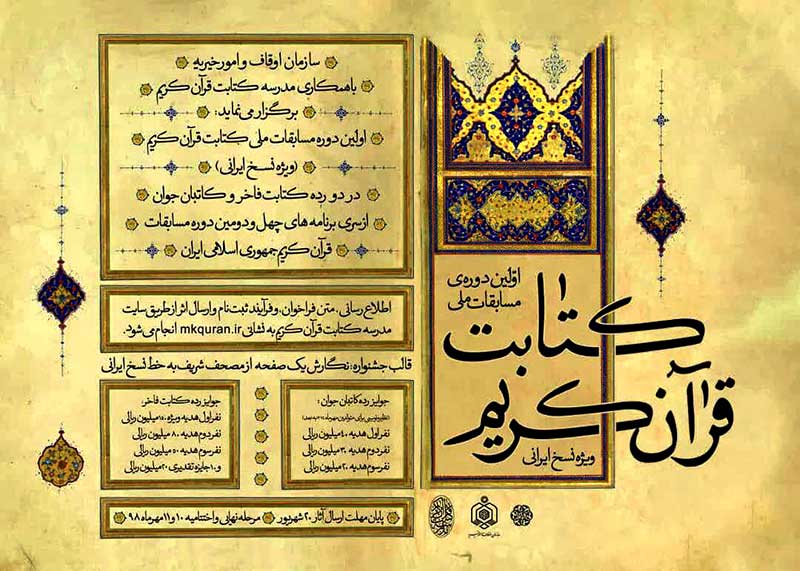 اوّلین دوره‌ی
مسابقات ملی
کتابت
قرآن کریم
ویژه نسخ ایرانی
سازمان اوقاف و امور خیریه
با همکاری مدرسه کتابت قرآن کریم
برگزار می نماید:
اولین دوره مسابقات ملی کتابت قرآن کریم
(ویژه نسخ ایرانی)
در دو رده کتابت فاخر و کاتبان جوان
از سری برنامه های چهل و دومین دوره مسابقات
قرآن کریم جمهوری اسلامی ایران
اطلاع رسانی، متن فراخوان، و فرآیند ثبت نام و ارسال اثر از طریق سایت
مدرسه کتابت قرآن کریم به نشانی mkquran.ir انجام می شود.
قالب جشنواره: نگارش یک صفحه از مصحف شریف به خط نسخ ایرانی
جوایز رده کاتبان جوان:
نفر اول هدیه ۴۰ میلیون ریالی
نفر دوم هدیه ۳۰ میلیون ریالی
نفر سوم هدیه ۲۰ میلیون ریالی
جوایز رده کتابت فاخر:
نفر اول هدیه ویژه ۱۵۰ میلیون ریالی
نفر دوم هدیه ۸۰ میلیون ریالی
نفر سوم هدیه ۵۰ میلیون ریالی
و ۱۰ جایزه تقدیری ۲۰ میلیون ریالی
پایان مهلت ارسال آثار ۲۰ شهریور مرحله نهایی و اختتامیه ۱۰ و ۱۱ مهر ماه ۹۸